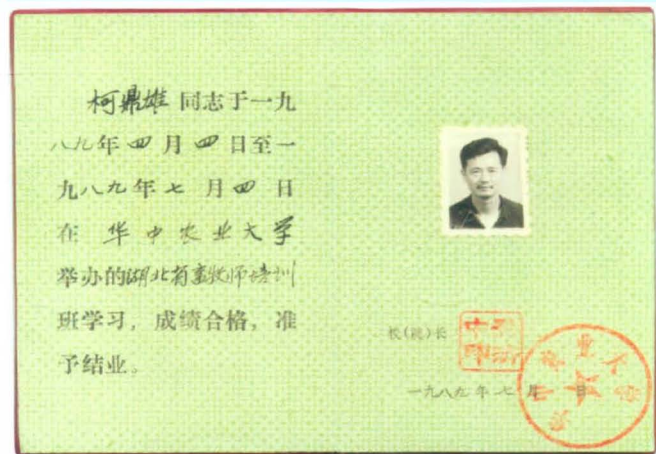 柯鼎雄 同志于一九
八九年四月四日至一
九八九年七月四日
在 华中农业大学
举办的湖北省畜牧师培训
班学习，成绩合格，准
予结业。
校(院)长
一九八九年七月 日